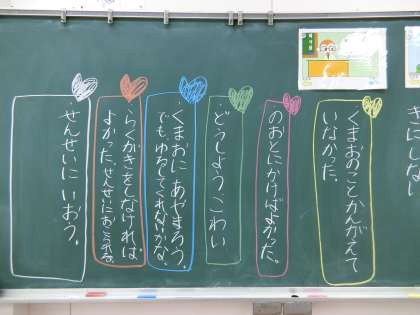 きはしない
くまおのことかんがえて
いなかった。
のおとにかけばよかった。
・どうしよう こわい
・くまおに あやまろう。
でも、ゆるしてくれないかな。
・らくがきをしなければ
よかった。せんせいにおこられる。
・せんせいに いおう。